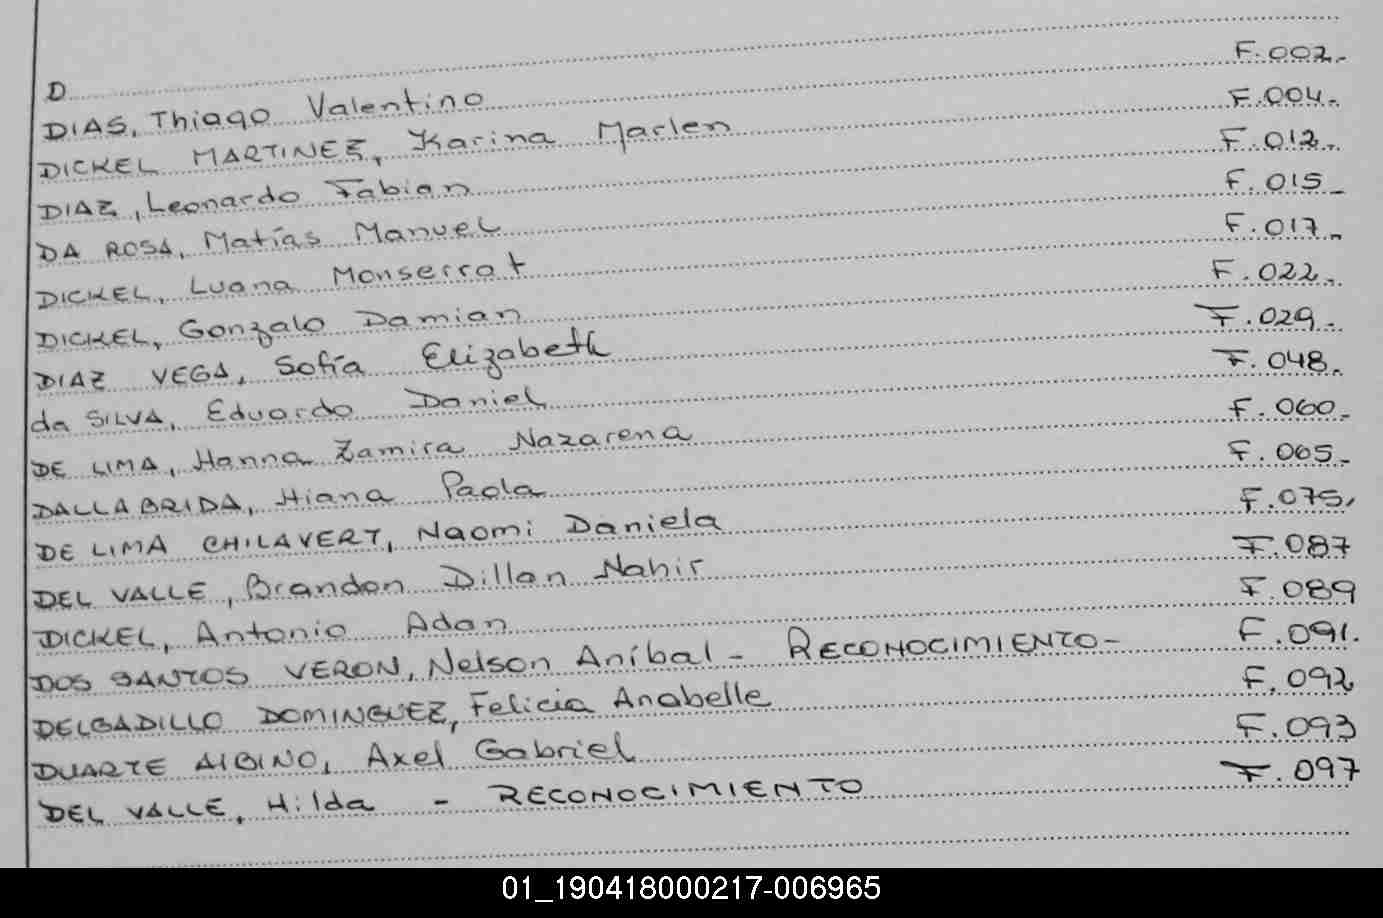 D
DIAS, Thiago Valentino F.002.
DICKEL MARTINEZ, Karina Marlen F.004.
DIAZ, Leonardo Fabian F.012.
DA ROSA, Matías Manuel F.015
DICKEL, Luana Monserrat F.017.
DICKEL, Gonzalo Damian F.022.
DIAZ VEGA, Sofía Elizabeth F.029.
da SILVA, Eduardo Daniel F.048.
DE LIMA, Hanna Zamira Nazarena F.060.
DALLABRIDA, Hiana Paola F.065.
DE LIMA CHILAVERT, Naomi Daniela F.075.
DEL VALLE, Brandon Dillan Nahir F.087
DICKEL, Antonio Adan F.089
DOS SANTOS VERON, Nelson Aníbal - RECONOCIMIENTO- F.091.
DELGADILLO DOMINGUEZ, Felicia Anabelle F.092
DUARTE ALBINO, Axel Gabriel F.093
DEL VALLE, Hilda - RECONOCIMIENTO F.097
01_190418000217-006965